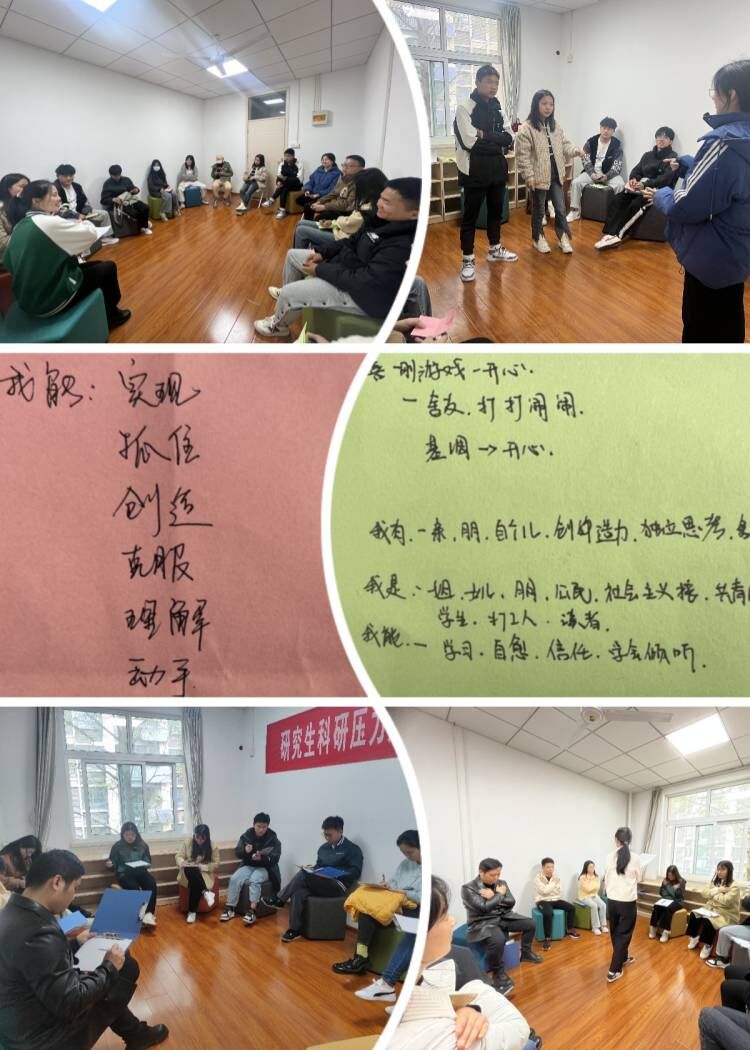 我能：实现
抓住
创造
克服
理解
动手
游戏-开心.
一舍友.打打闹闹.
基调→开心.
我有.一亲.朋.自个儿.创造力.独立思考.
我是.一姐.女儿.朋.公民.社会主义接.共青
学生.打工人.读者.
我能.一学习.自愈.信任.学会倾听.
研究生科研压力